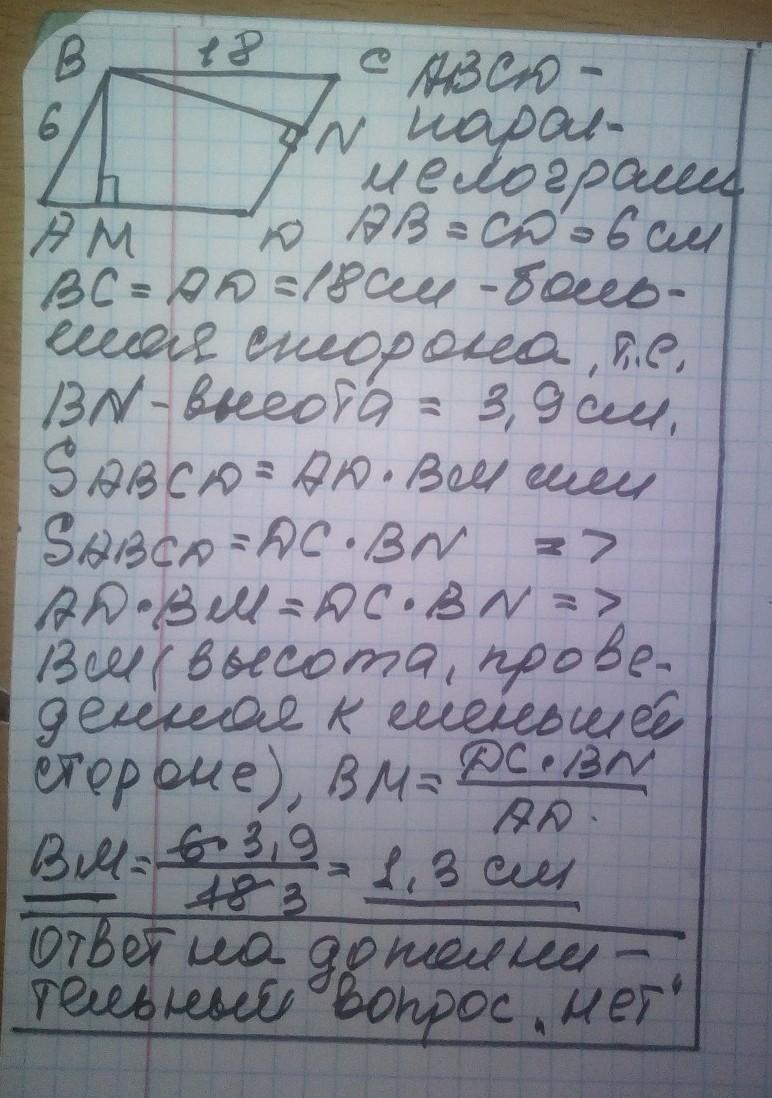 B 18 C
6
N
A M D
ABCD -
парал-
лелограмм
AB = CD = 6 см
BC = AD = 18 см - боль-
шая сторона, т.е.
BN - высота = 3,9 см.
SABCD = AD · BM или
SABCD = DC · BN =>
AD · BM = DC · BN =>
BM (высота, прове-
денная к меньшей
стороне), BM = DC · BN
AD.
BM = 6 · 3,9 = 1,3 см
18 3
Ответ на дополни-
тельный вопрос „нет“